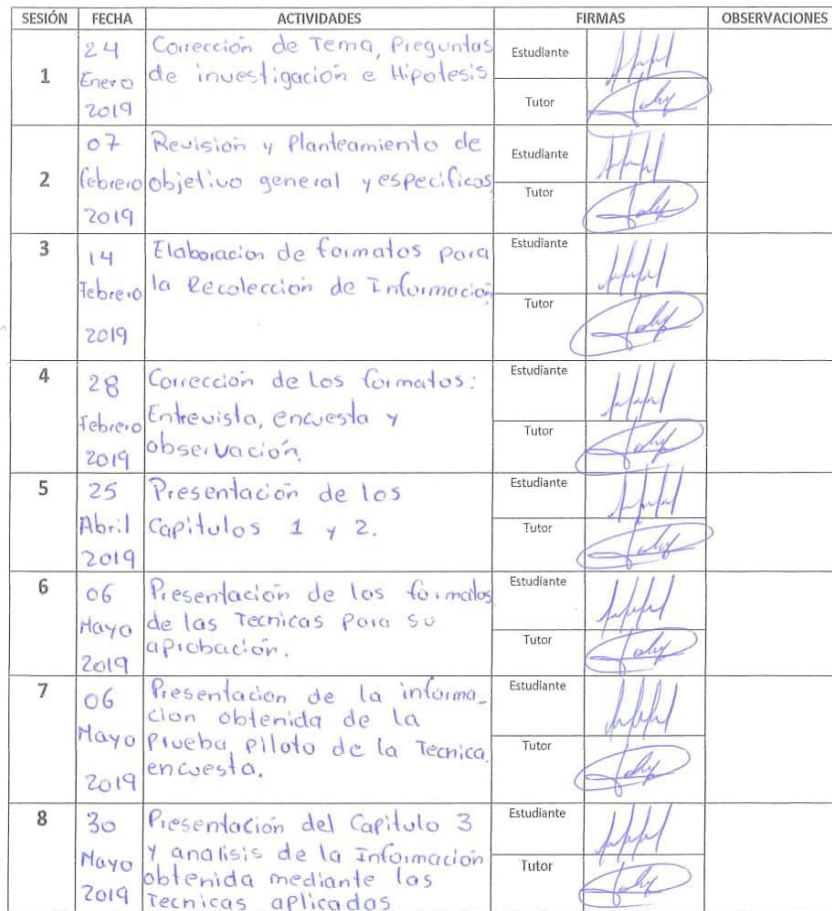 SESIÓN FECHA ACTIVIDADES FIRMAS OBSERVACIONES
1
24
Enero
2019
Corrección de Tema, Preguntas
de investigación e Hipotesis
Estudiante
Tutor
2
07
febrero
2019
Revisión y Planteamiento de
objetivo general y especificos
Estudiante
Tutor
3
14
Febrero
2019
Elaboracion de formatos para
la Recolección de Información
Estudiante
Tutor
4
28
Febrero
2019
Corrección de Los formatos:
Entrevista, encuesta y
observación.
Estudiante
Tutor
5
25
Abril
2019
Presentación de los
Capitulos 1 y 2.
Estudiante
Tutor
6
06
Mayo
2019
Presentación de los formatos
de las Tecnicas para su
aprobación.
Estudiante
Tutor
7
06
Mayo
2019
Presentacion de la informa_
cion obtenida de la
Prueba piloto de la Tecnica
encuesta.
Estudiante
Tutor
8
30
Mayo
2019
Presentación del Capitulo 3
y analisis de la Información
obtenida mediante las
Tecnicas aplicadas
Estudiante
Tutor